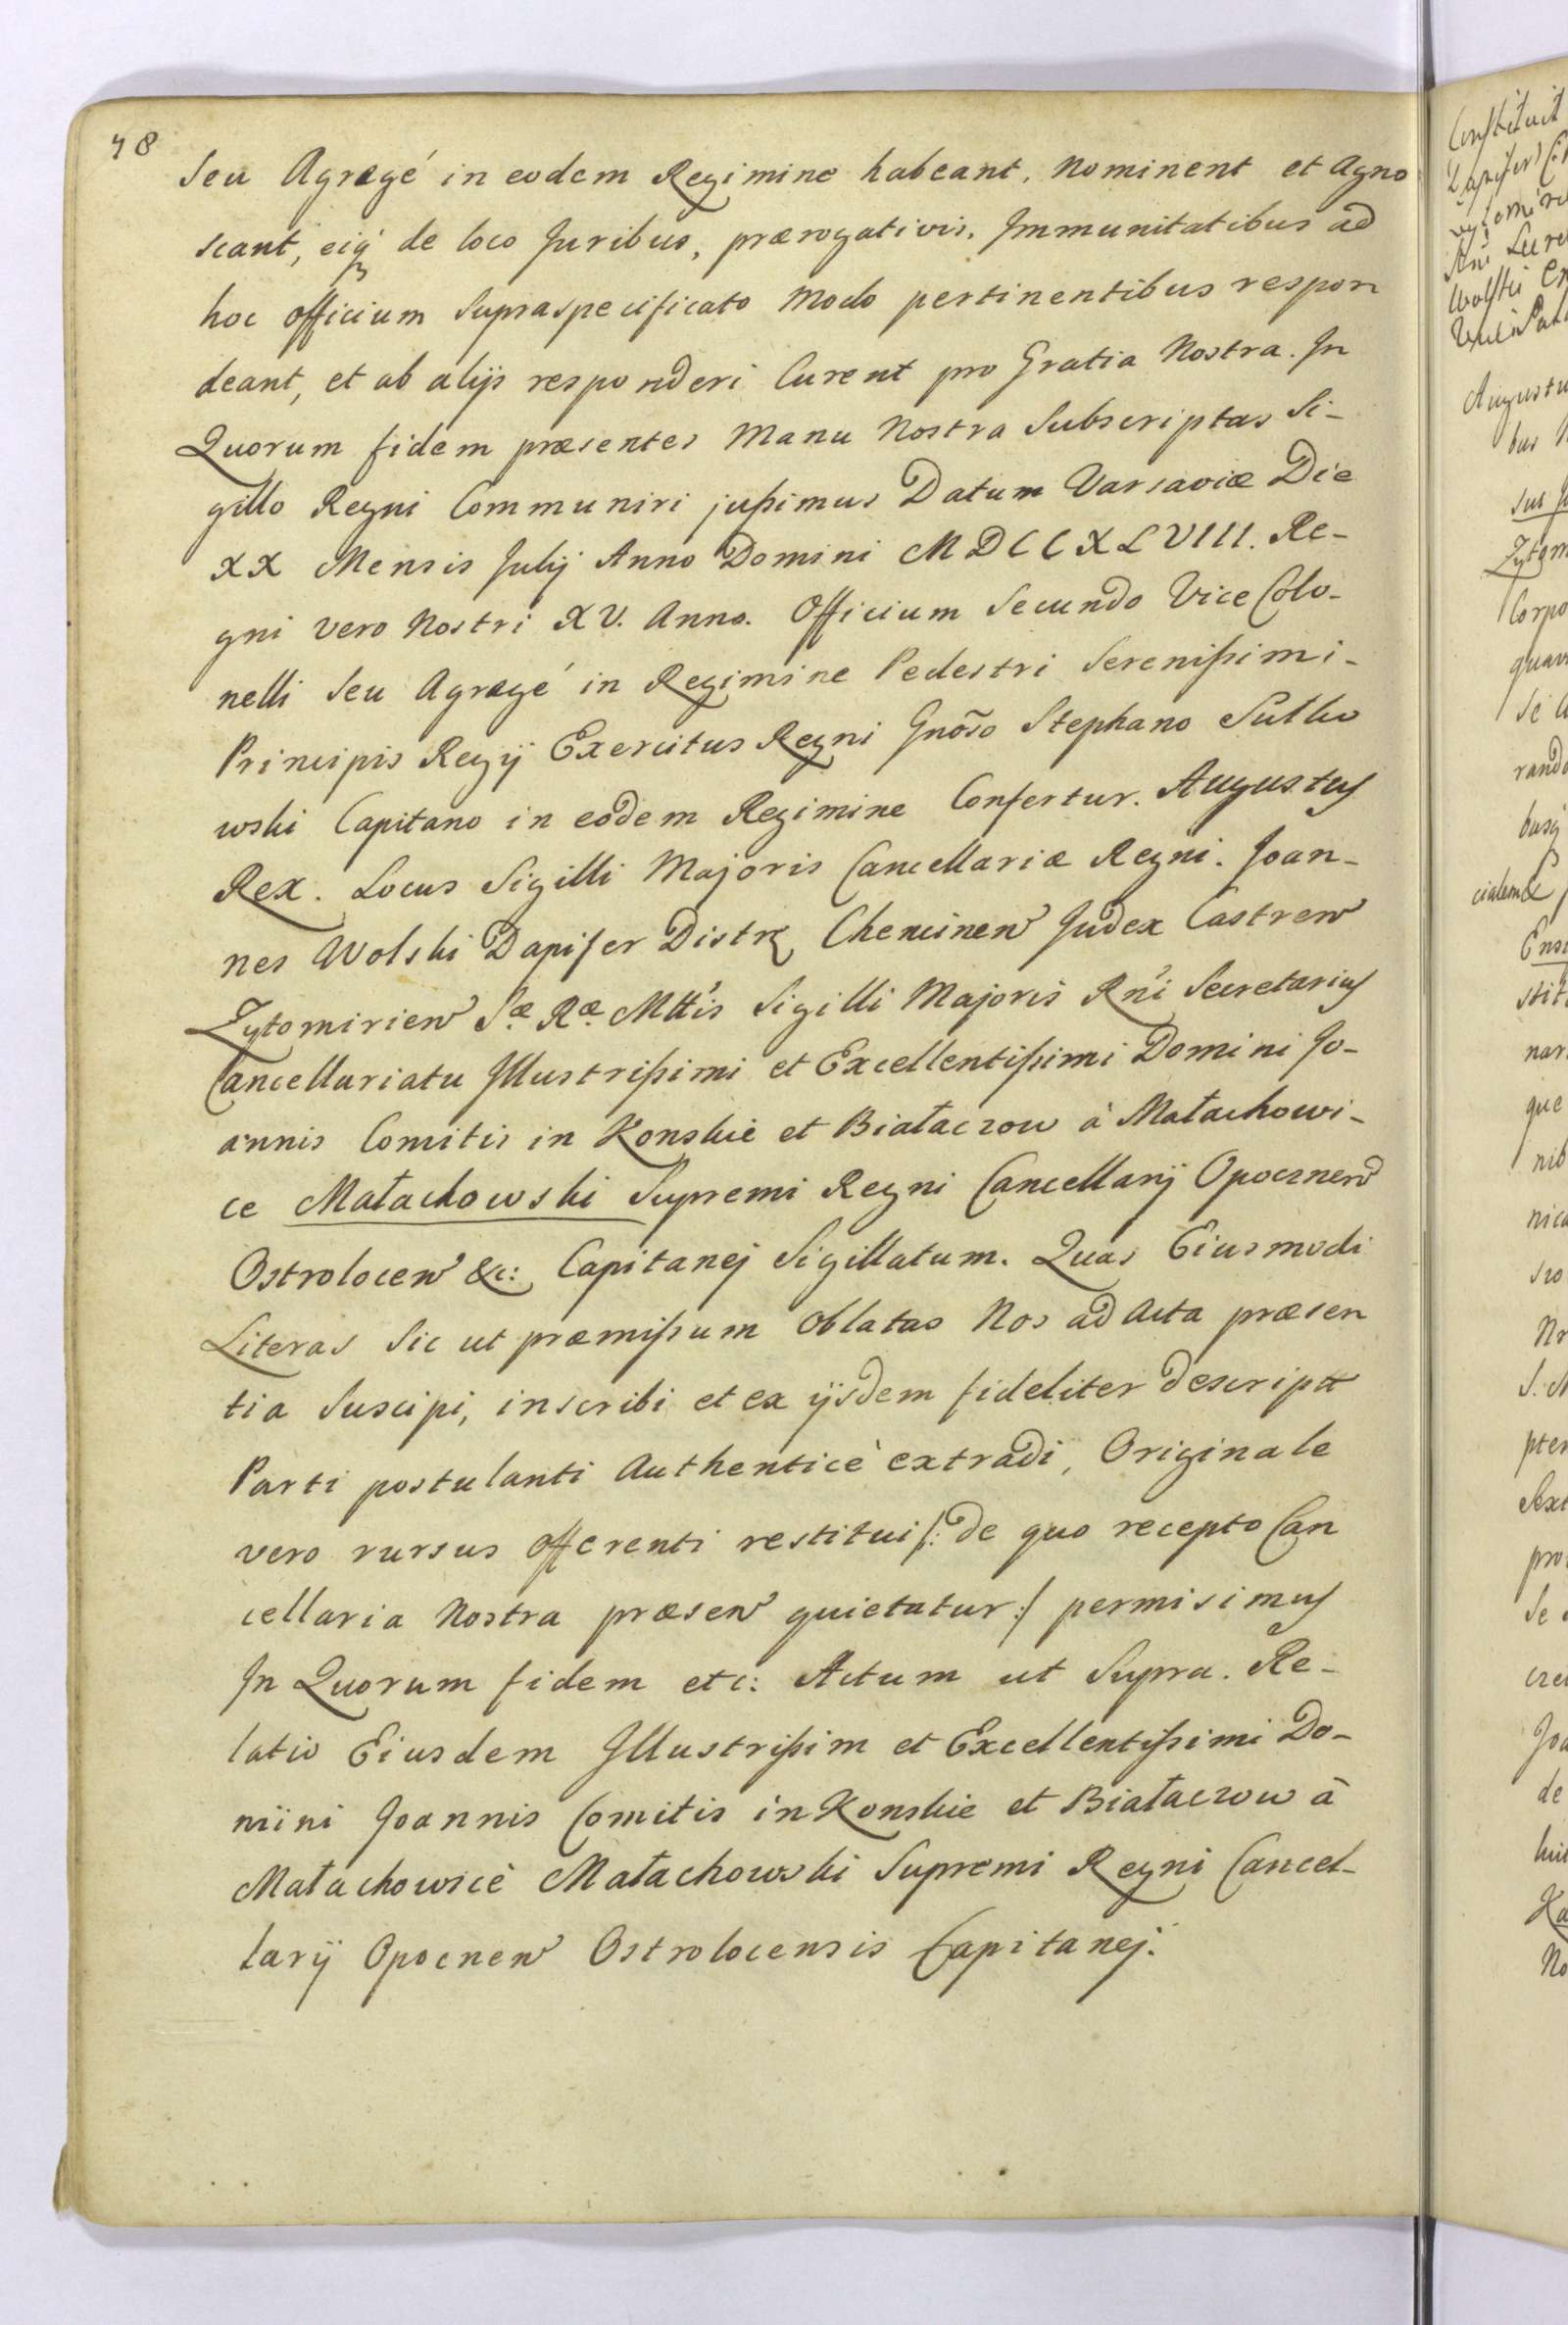 48
seu Agregé in eodem Regimine habeant, nominent et Agno
scant, eiq́ de loco Juribus, prærogativis, Immunitatibus ad
hoc officium supraspecificato modo pertinentibus respon
deant, et ab alijs responderi Curent pro Gratia Nostra. In
Quorum fidem præsentes manu Nostra Subscriptas Si-
gillo Regni Communiri jußimus Datum Varsaviæ Die
XX Mensis Julij Anno Domini MDCCXLVIII. Re-
gni vero Nostri XV. Anno. Officium Secundo Vice Colo-
nelli seu Agregé in Regimine Pedestri Serenißimi-
Principis Regij Exercitus Regni Gnõso Stephano Sułko
wski Capitano in eodem Regimine Confertur. Augustus
Rex. Locus Sigilli Majoris Cancellariæ Regni. Joan-
nes Wolski Dapifer Distr Chencinen Judex Castren
Zytomirien Sæ Ræ Mttis Sigilli Majoris Rni Secretarius
Cancellariatu Illustrißimi et Excellentißimi Domini Jo-
annis Comitis in Konskie et Białaczow à Małachowi-
ce Małachowski Supremi Regni Cancellarij Opocznen
Ostrolocen &c: Capitanej Sigillatum. Quas Eiusmodi
Literas Sic ut præmißum oblatas Nos ad Acta præsen
tia Suscipi, inscribi et ex ijsdem fideliter descriptt
Parti postulanti Authenticè extradi, Originale
vero rursus offerenti restitui /: de quo recepto Can
cellaria Nostra præsen quietatur :/ permisimus
In Quorum fidem etc: Actum ut Supra. Re-
latio Eiusdem Illustrißim et Excellentißimi Do-
mini Joannis Comitis in Konskie et Białaczow à
Małachowicè Małachowski Supremi Regni Cancel-
larij Opocnen Ostrolocensis Capitanej.
Constituit
Augustu
bus
Zytom
Corpo
quam
rando
busq́
cialem
stit
nar
que
nib
nica
pter
pro
de
No